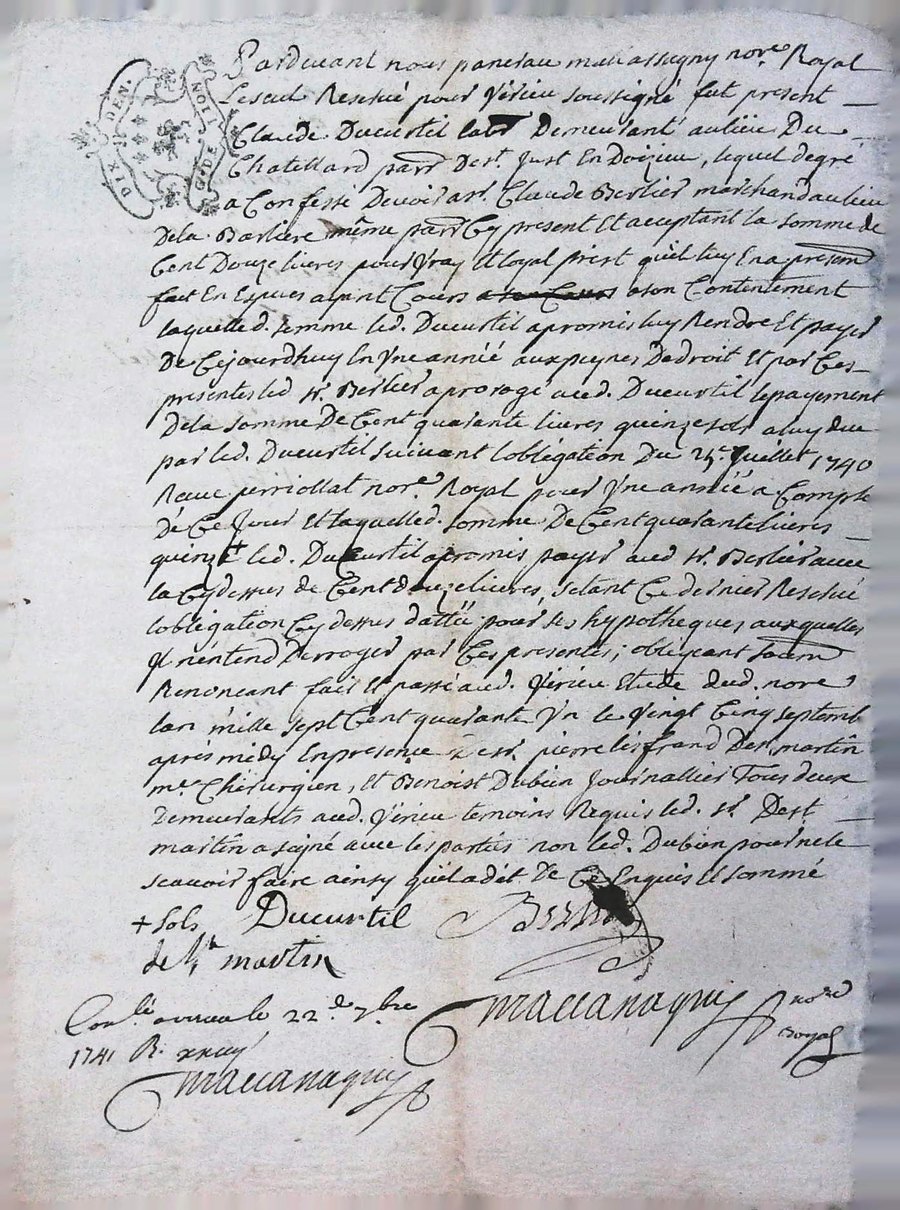 DIX DEN.
G. DE LION
Pardevant nous nore Royal
Reservé pour Virieu soussigné fut present
Claude Ducurtil labr Demeurant au lieu Du
Chatellard parr De st. Just En Doizieu, lequel de gré
a Confessé Devoir a sr. Claude Berlier marchand au lieu
De la Barliere même parr Cy present Et acceptant la somme de
Cent Douze livres pour Vray Et loyal prest qu'il luy En a presentt
fait En Espices ayant Cours a son Contentement
laquelle d. somme led. Ducurtil a promis luy Rendre Et payer
De Cejourdhuy En Une année aux peynes De droit Et par Ces
presentes led sr. Berlier a prorogé aud. Ducurtil le payement
De la somme De Cent quarante livres quinze sols a luy due
par led. Ducurtil suivant lobligation Du Juillet 1740
Receue perriollat nore. Royal pour Une année a Compter
De Ce Jour Et laquelle d. somme De Cent quarante livres
quinze + led. Ducurtil a promis payer aud sr. Berlier avec
la Cy dessus de Cent douze livres, Setant Ce dernier Reservé
lobligation Cy dessus dattée pour ses hypotheques auxquelles
Il n'entend Derroger par Ces presentes; obligeant soum
Renonceant fait Et passé aud. Virieu Etude dud. nore
lan mille sept Cent quarante Un le Vingt Cinq septemb
après midy En presence De sr. pierre De st. martin
me Chirurgien, Et Benoist Dubien Journallier Tous deux
Demeurants aud. Virieu temoins Requis led. sr. De st
martin a signé avec les parties non led. Dubien pour ne le
scavoir faire ainsy qu'il a dit De Ce Enquis Et sommé
+ sols Ducurtil Berlier
de st martin
nore
Royal
Conlé a virieu le 22e 7bre
1741 R.